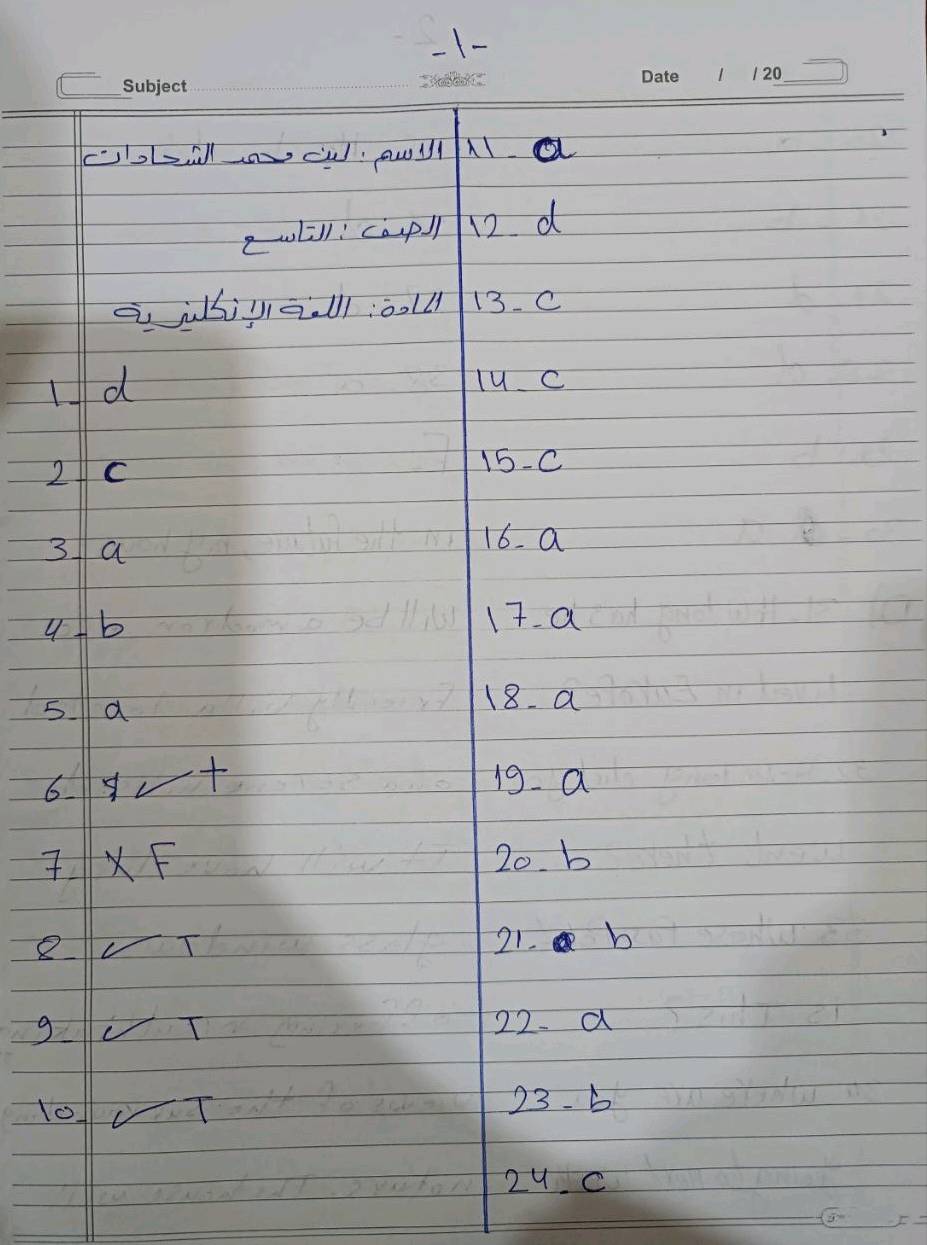 -1-
Subject
Date / / 20
الاسم: ليث محمد الشحادات
الصف: التاسع
المادة: اللغة الإنكليزية
1- d
2- c
3- a
4- b
5- a
6- ✓ +
7- X F
8- ✓ T
9- ✓ T
10- ✓ T
11- a
12- d
13- c
14- c
15- c
16- a
17- a
18- a
19- a
20- b
21- b
22- a
23- b
24- c